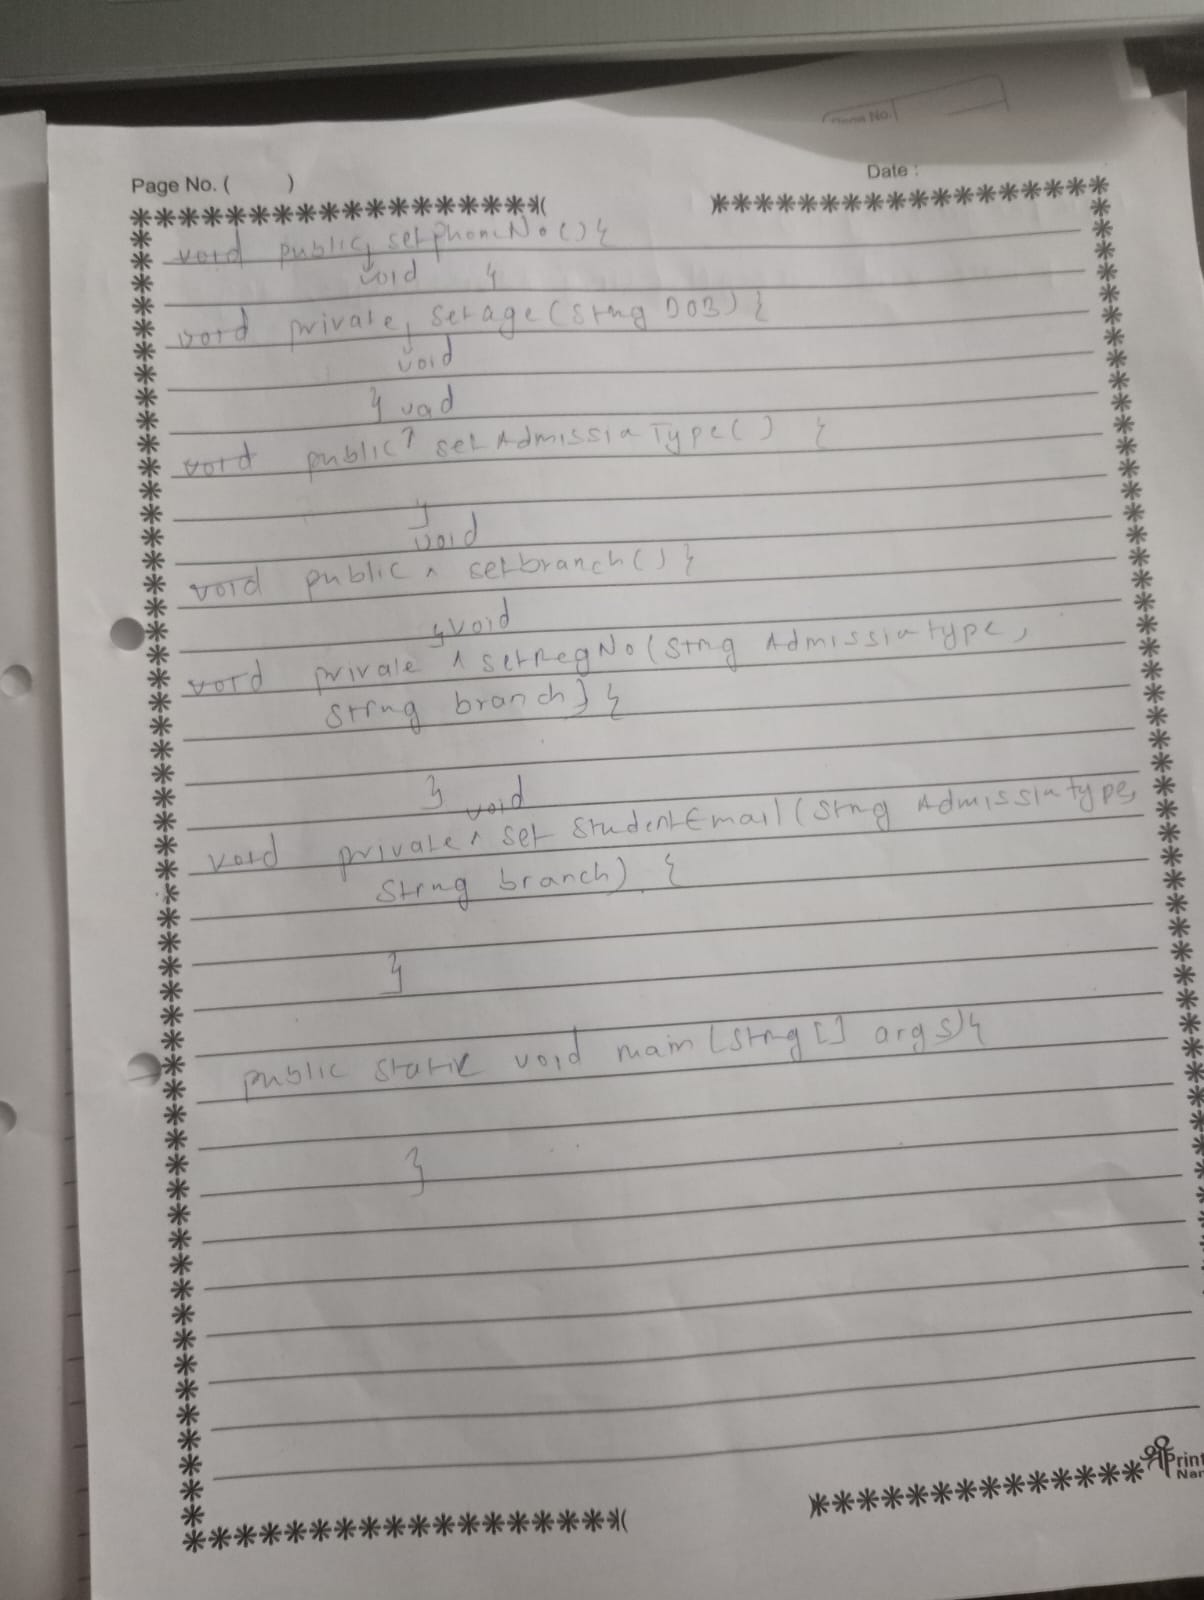 Page No. ( )
Date :
void public setphoneNo(){
void }
void private setage(String DOB){
void
} void
void public setAdmissionType() {
}
void
void public setbranch(){
} void
void private setRegNo(String Admissiontype,
String branch) {
} void
void private set StudentEmail(String Admissiontype,
String branch) {
}
public static void main(String[] args){
}